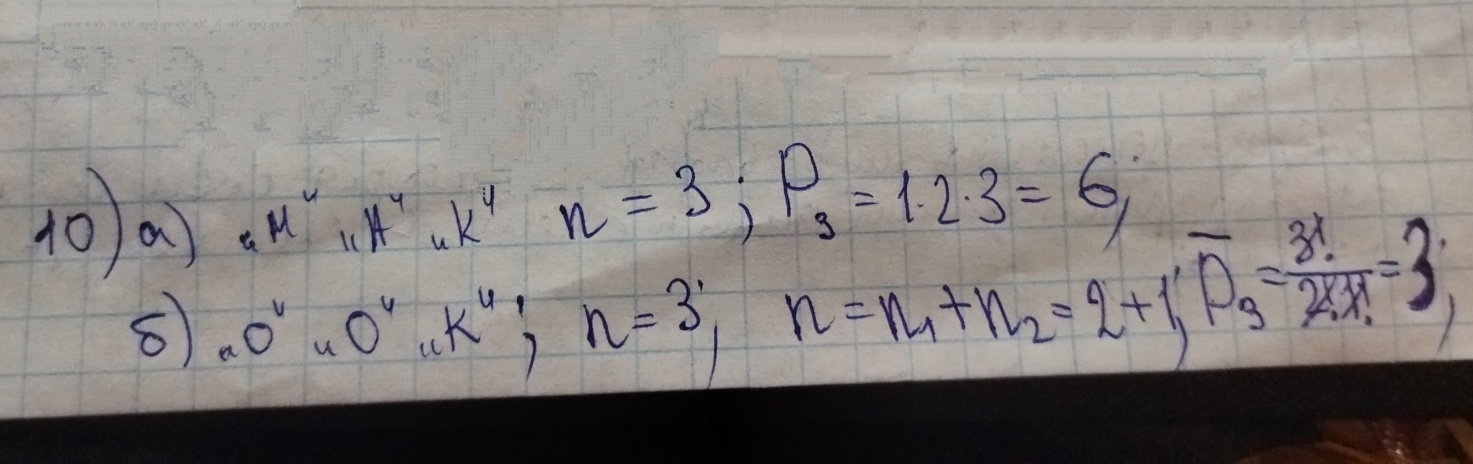 10) а) „М" „А" „К" n = 3; P₃ = 1·2·3 = 6;
б) „О" „О" „К"; n = 3; n = n₁ + n₂ = 2 + 1; P̅₃ = 3!/2!·1! = 3;